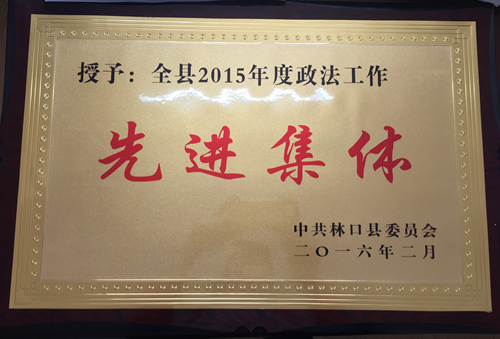 授予：全县2015年度政法工作
先进集体
中共林口县委员会
二〇一六年二月